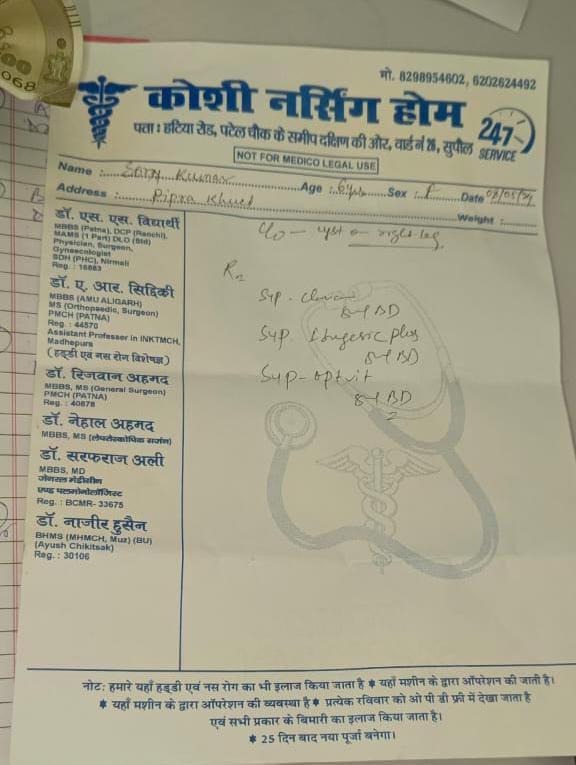 मो. 8298954602, 6202624492
कोशी नर्सिंग होम
पता : हटिया रोड, पटेल चौक के समीप दक्षिण की ओर, वार्ड नं 28, सुपौल
247
SERVICE
NOT FOR MEDICO LEGAL USE
Name : Kumar Age : 6 yrs Sex : F Date
Address : Pipra Khurd Weight :
डॉ. एस. एस. विद्यार्थी
MBBS (Patna), DCP (Ranchi),
MAMS (1 Part) DLO (Std)
Physician, Surgeon,
Gynaecologist
SDH (PHC), Nirmali
Reg. : 16883
डॉ. ए. आर. सिद्दिकी
MBBS (AMU ALIGARH)
MS (Orthopaedic, Surgeon)
PMCH (PATNA)
Reg. : 44570
Assistant Professer in INKTMCH,
Madhepura
(हड्डी एवं नस रोग विशेषज्ञ)
डॉ. रिजवान अहमद
MBBS, MS (General Surgeon)
PMCH (PATNA)
Reg. : 40878
डॉ. नेहाल अहमद
MBBS, MS (लेपरोस्कोपिक सर्जन)
डॉ. सरफराज अली
MBBS, MD
जेनरल मेडीसीन
एण्ड पलमोनोलॉजिस्ट
Reg. : BCMR- 33675
डॉ. नाजीर हुसैन
BHMS (MHMCH, Muz) (BU)
(Ayush Chikitsak)
Reg. : 30106
C/o - cyst on right leg
Rx
Syp.
BD
Syp. Ibugesic plus
BD
Syp - optvit
BD
नोट: हमारे यहाँ हड्डी एवं नस रोग का भी इलाज किया जाता है * यहाँ मशीन के द्वारा ऑपरेशन की जाती है।
* यहाँ मशीन के द्वारा ऑपरेशन की व्यवस्था है * प्रत्येक रविवार को ओ पी डी फ्री में देखा जाता है
एवं सभी प्रकार के बिमारी का इलाज किया जाता है।
* 25 दिन बाद नया पूर्जा बनेगा।